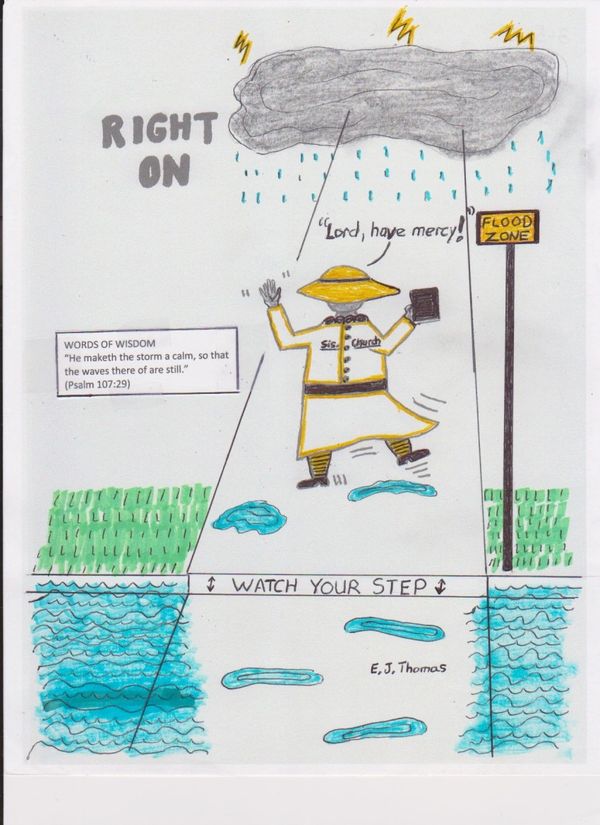 RIGHT
ON
"Lord, have mercy!"
FLOOD
ZONE
Sis. Church
WORDS OF WISDOM
"He maketh the storm a calm, so that
the waves there of are still."
(Psalm 107:29)
WATCH YOUR STEP
E.J. Thomas